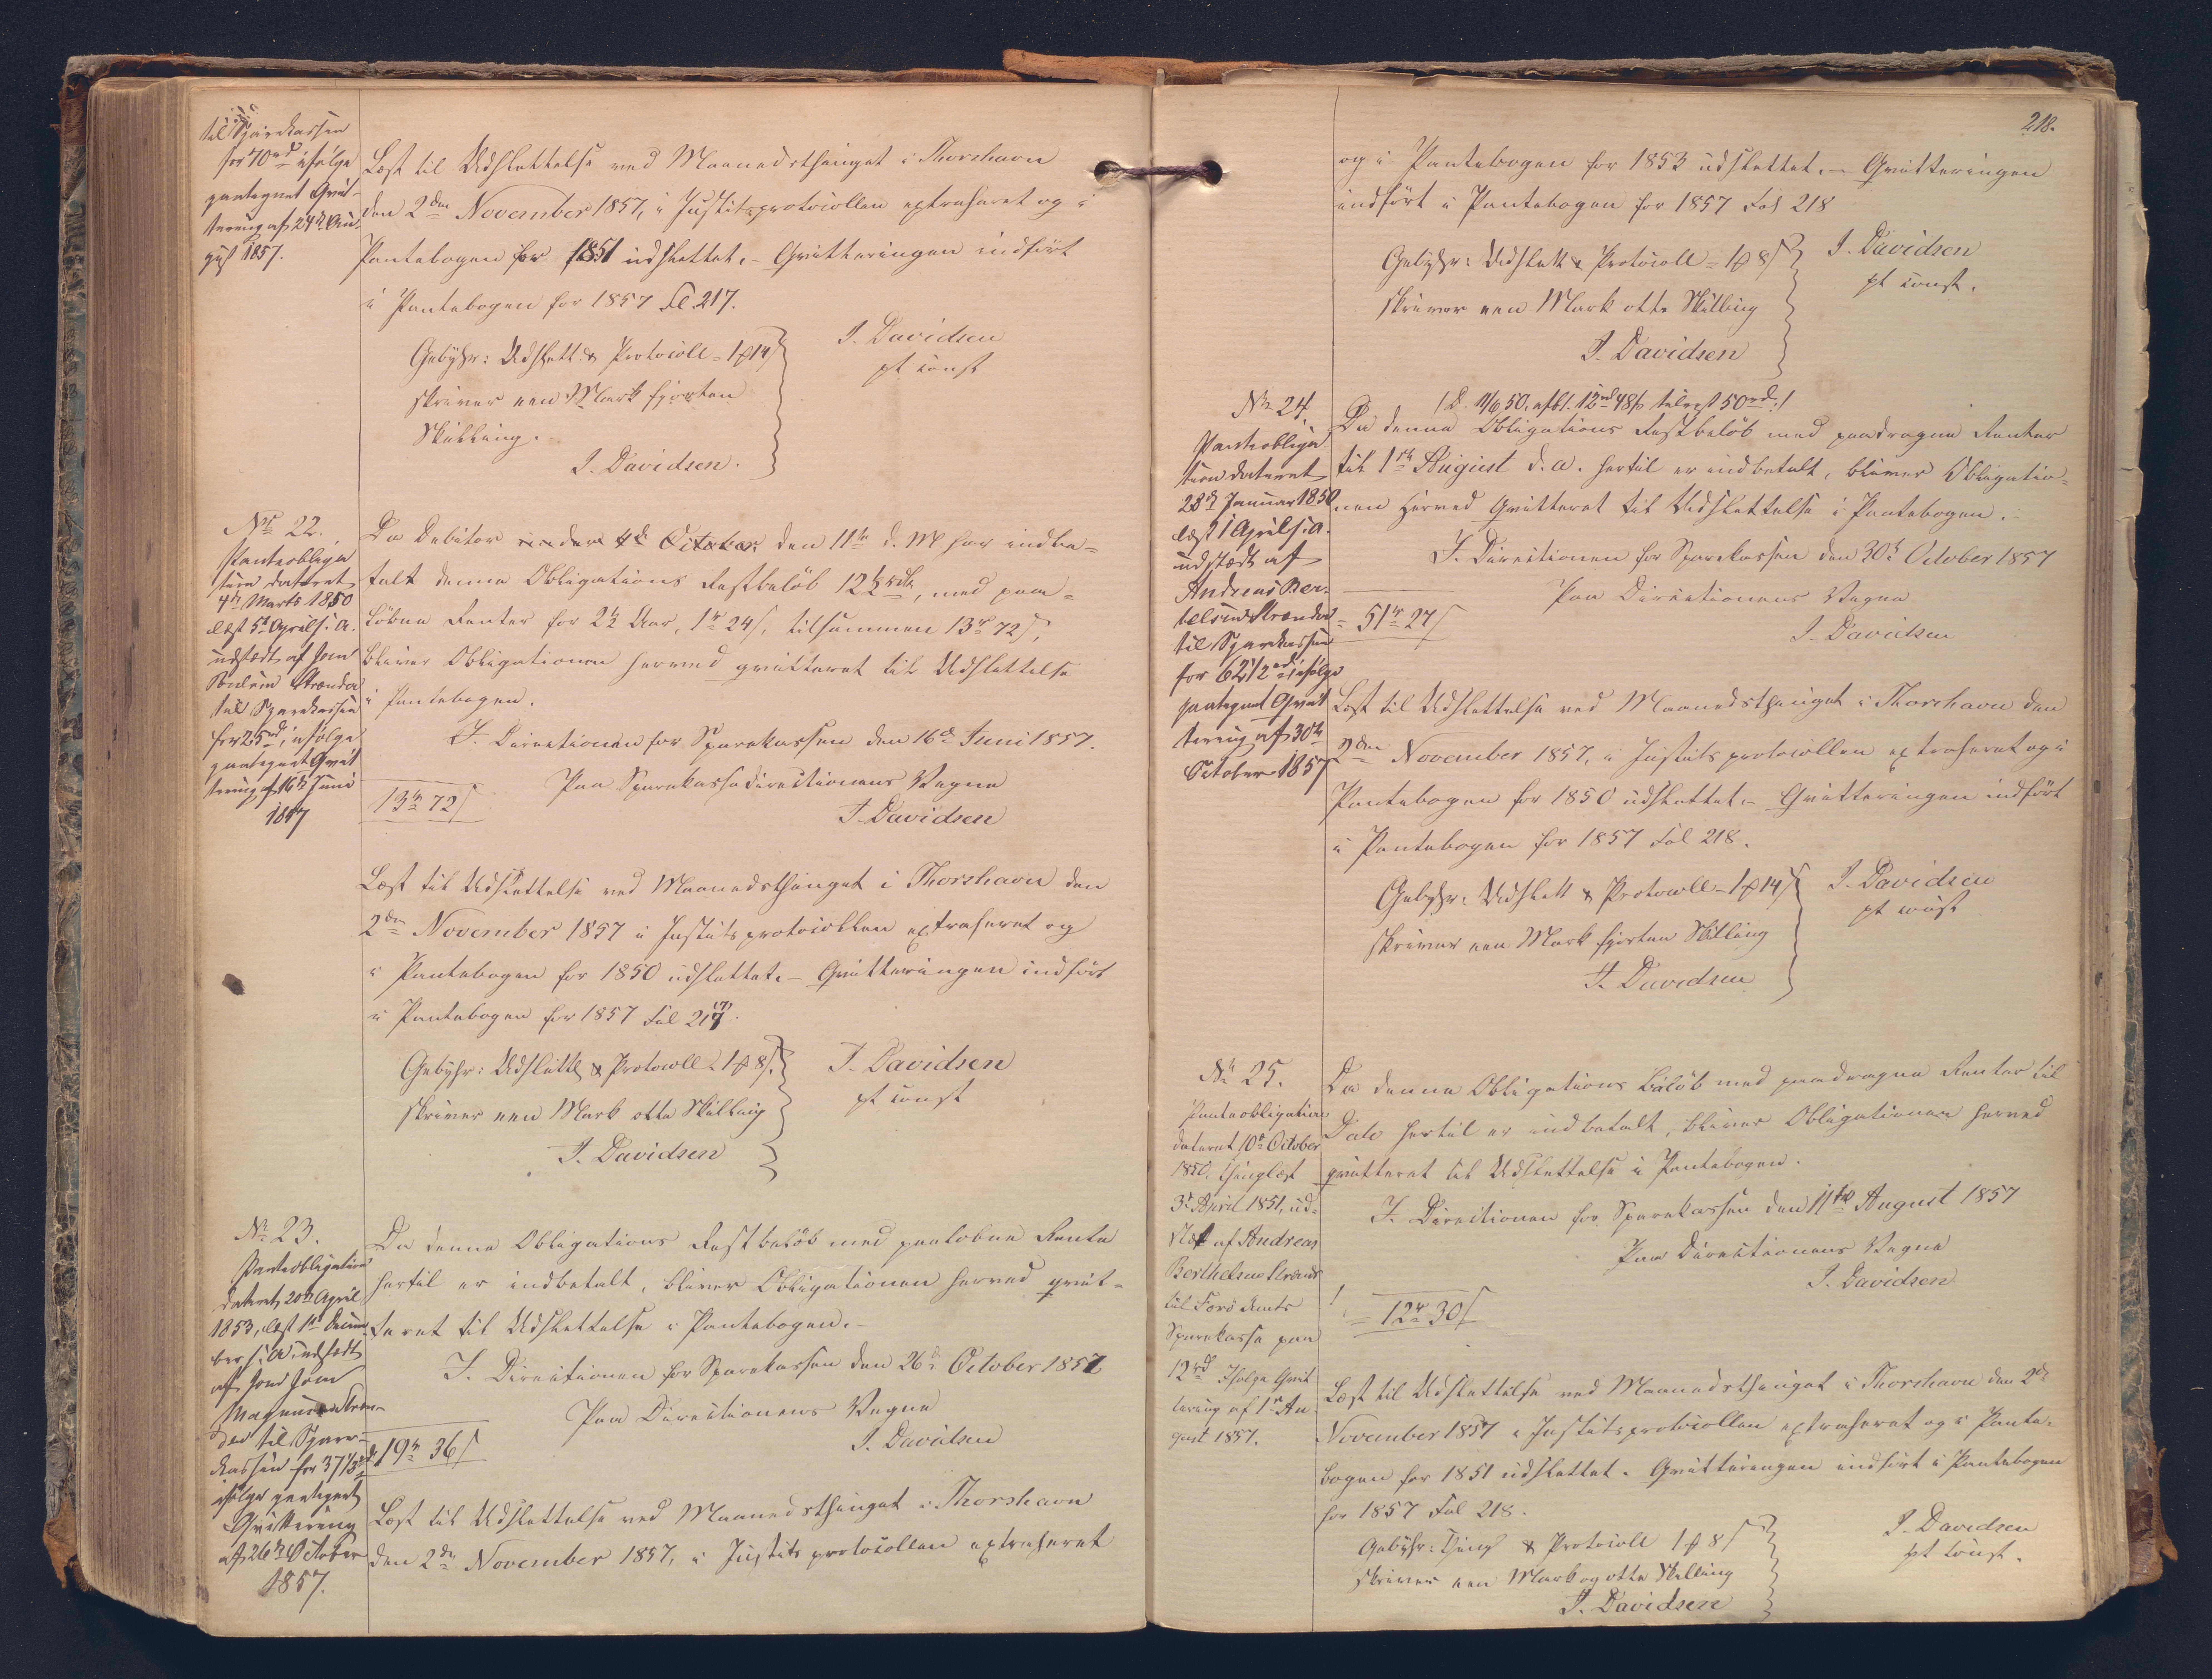 til Sparekassen
for 70 rd ifølge
paategnet Qvit-
tering af 24de Au-
gust 1857.
Læst til Udslettelse ved Maanedsthinget i Thorshavn
den 2den November 1857, i Justitsprotocollen extraheret og i
Pantebogen for 1851 udslettet. – Qvitteringen indført
i Pantebogen for 1857 Fol. 217.
Gebyhr: Udslett. & Protocoll = 1 ℔ 14 ß
skriver een Mark fjorten
Skilling.
J. Davidsen.
J. Davidsen
pt const
No 22.
Panteobliga
tion dateret
4de Marts 1850
læst 5te April s. A.
udstædt af
til Sparekassen
for 25 rd, ifølge
paategnet Qvit
tering af 16de Juni
1857
Da Debitor den 11te d. M. har indbe-
talt denne Obligations Restbeløb 12½ rd, med paa-
løbne Renter for 2½ Aar, 1 rd 24 ß, tilsammen 13 rd 72 ß,
bliver Obligationen herved qvitteret til Udslettelse
i Pantebogen.
I Directionen for Sparekassen den 16de Juni 1857.
Paa Sparekassedirectionens Vegne
13 rd 72 ß
J. Davidsen
Læst til Udslettelse ved Maanedsthinget i Thorshavn den
2den November 1857 i Justitsprotocollen extraheret og
i Pantebogen for 1850 udslettet. – Qvitteringen indført
i Pantebogen for 1857 Fol 217.
Gebyhr: Udslette & Protocoll 1 ℔ 8 ß.
skriver een Mark otte Skilling
J. Davidsen
J. Davidsen
pt const
No 23.
Panteobligation
dateret 20de April
1853, læst 1ste Decem
ber s. A. udstædt
af
Magnus
til Spare-
kassen for 37½ rd
ifølge paategnet
Qvittering
af 26de October
1857.
Da denne Obligations Restbeløb med paaløbne Rente
hertil er indbetalt, bliver Obligationen herved qvit-
teret til Udslettelse i Pantebogen. –
I Directionen for Sparekassen den 26de October 1857
Paa Directionens Vegne
J. Davidsen
19 rd 36 ß
Læst til Udslettelse ved Maanedsthinget i Thorshavn
den 2den November 1857, i Justitsprotocollen extraheret
218.
og i Pantebogen for 1853 udslettet. – Qvitteringen
indført i Pantebogen for 1857 Fol 218
Gebyhr: Udslett & Protocoll = 1 ℔ 8 ß
skriver een Mark otte Skilling
J. Davidsen
J. Davidsen
pt const.
No 24.
Panteobliga
tion dateret
28de Januar 1850
læst 1 April s. A.
udstædt af
Andreas Ber-
telsen
til Sparekassen
for 62 1/2 rd ifølge
paategnet Qvit
tering af 30te
October 1857
/: D. 11/6 50, afbt. 12 rd 48 ß tilrest 50 rd. :/
Da denne Obligations Restbeløb med paadragne Renter
til 1ste August d. A. hertil er indbetalt, bliver Obligatio-
nen herved Qvitteret til Udslettelse i Pantebogen. –
I Directionen for Sparekassen den 30te October 1857
Paa Directionens Vegne
= 51 rd 27 ß
J. Davidsen
Læst til Udslettelse ved Maanedsthinget i Thorshavn den
2den November 1857, i Justitsprotocollen extraheret og i
Pantebogen for 1850 udslettet. – Qvitteringen indført
i Pantebogen for 1857 Fol 218.
Gebyhr: Udslett & Protocoll – 1 ℔ 14 ß
skriver een Mark fjorten Skilling
J. Davidsen
J. Davidsen
pt const
No 25.
Panteobligation
dateret 10de October
1850, thinglæst
3de April 1851, ud-
stædt af Andreas
Berthelsen
til Færö Amts
Sparekasse paa
12 rd Ifølge Qvit
tering af 1ste Au
gust 1857.
Da denne Obligations Beløb med paadragne Renter til
Dato hertil er indbetalt, bliver Obligationen herved
qvitteret til Udslettelse i Pantebogen.
I Directionen for Sparekassen den 11te August 1857
Paa Directionens Vegne
J. Davidsen
= 12 rd 30 ß
Læst til Udslettelse ved Maanedsthinget i Thorshavn den 2de
November 1857 i Justitsprotocollen extraheret og i Pante-
bogen for 1851 udslettet. Qvitteringen indført i Pantebogen
for 1857 Fol 218.
Gebyhr: Thing & Protocoll 1 ℔ 8 ß
skriver een Mark og otte Skilling
J. Davidsen
J. Davidsen
pt const.